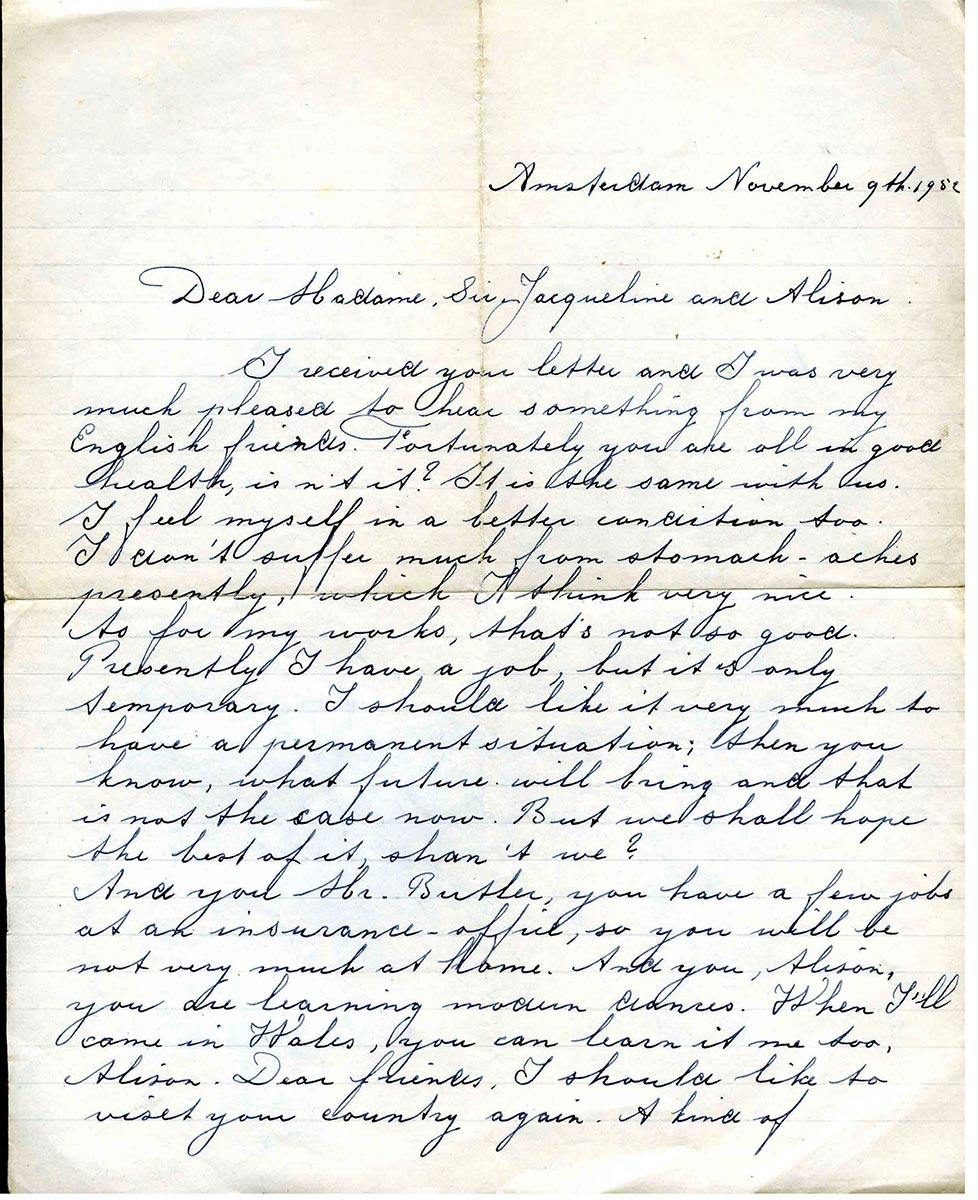 Amsterdam November 9th. 1952
Dear Madame, Sir, Jacqueline and Alison.
I received your letter and I was very
much pleased to hear something from my
English friends. Fortunately you are all in good
health, is n't it? It is the same with us.
I feel myself in a better condition too.
I don't suffer much from stomach-aches
presently, which I think very nice.
As for my works, that's not so good.
Presently I have a job, but it is only
temporary. I should like it very much to
have a permanent situation; then you
know, what future will bring and that
is not the case now. But we shall hope
the best of it, shan't we?
And you Mr. Butler, you have a few jobs
at an insurance-office, so you will be
not very much at home. And you, Alison,
you are learning modern dances. When I'll
come in Wales, you can learn it me too,
Alison. Dear friends, I should like to
viset your country again. A kind of